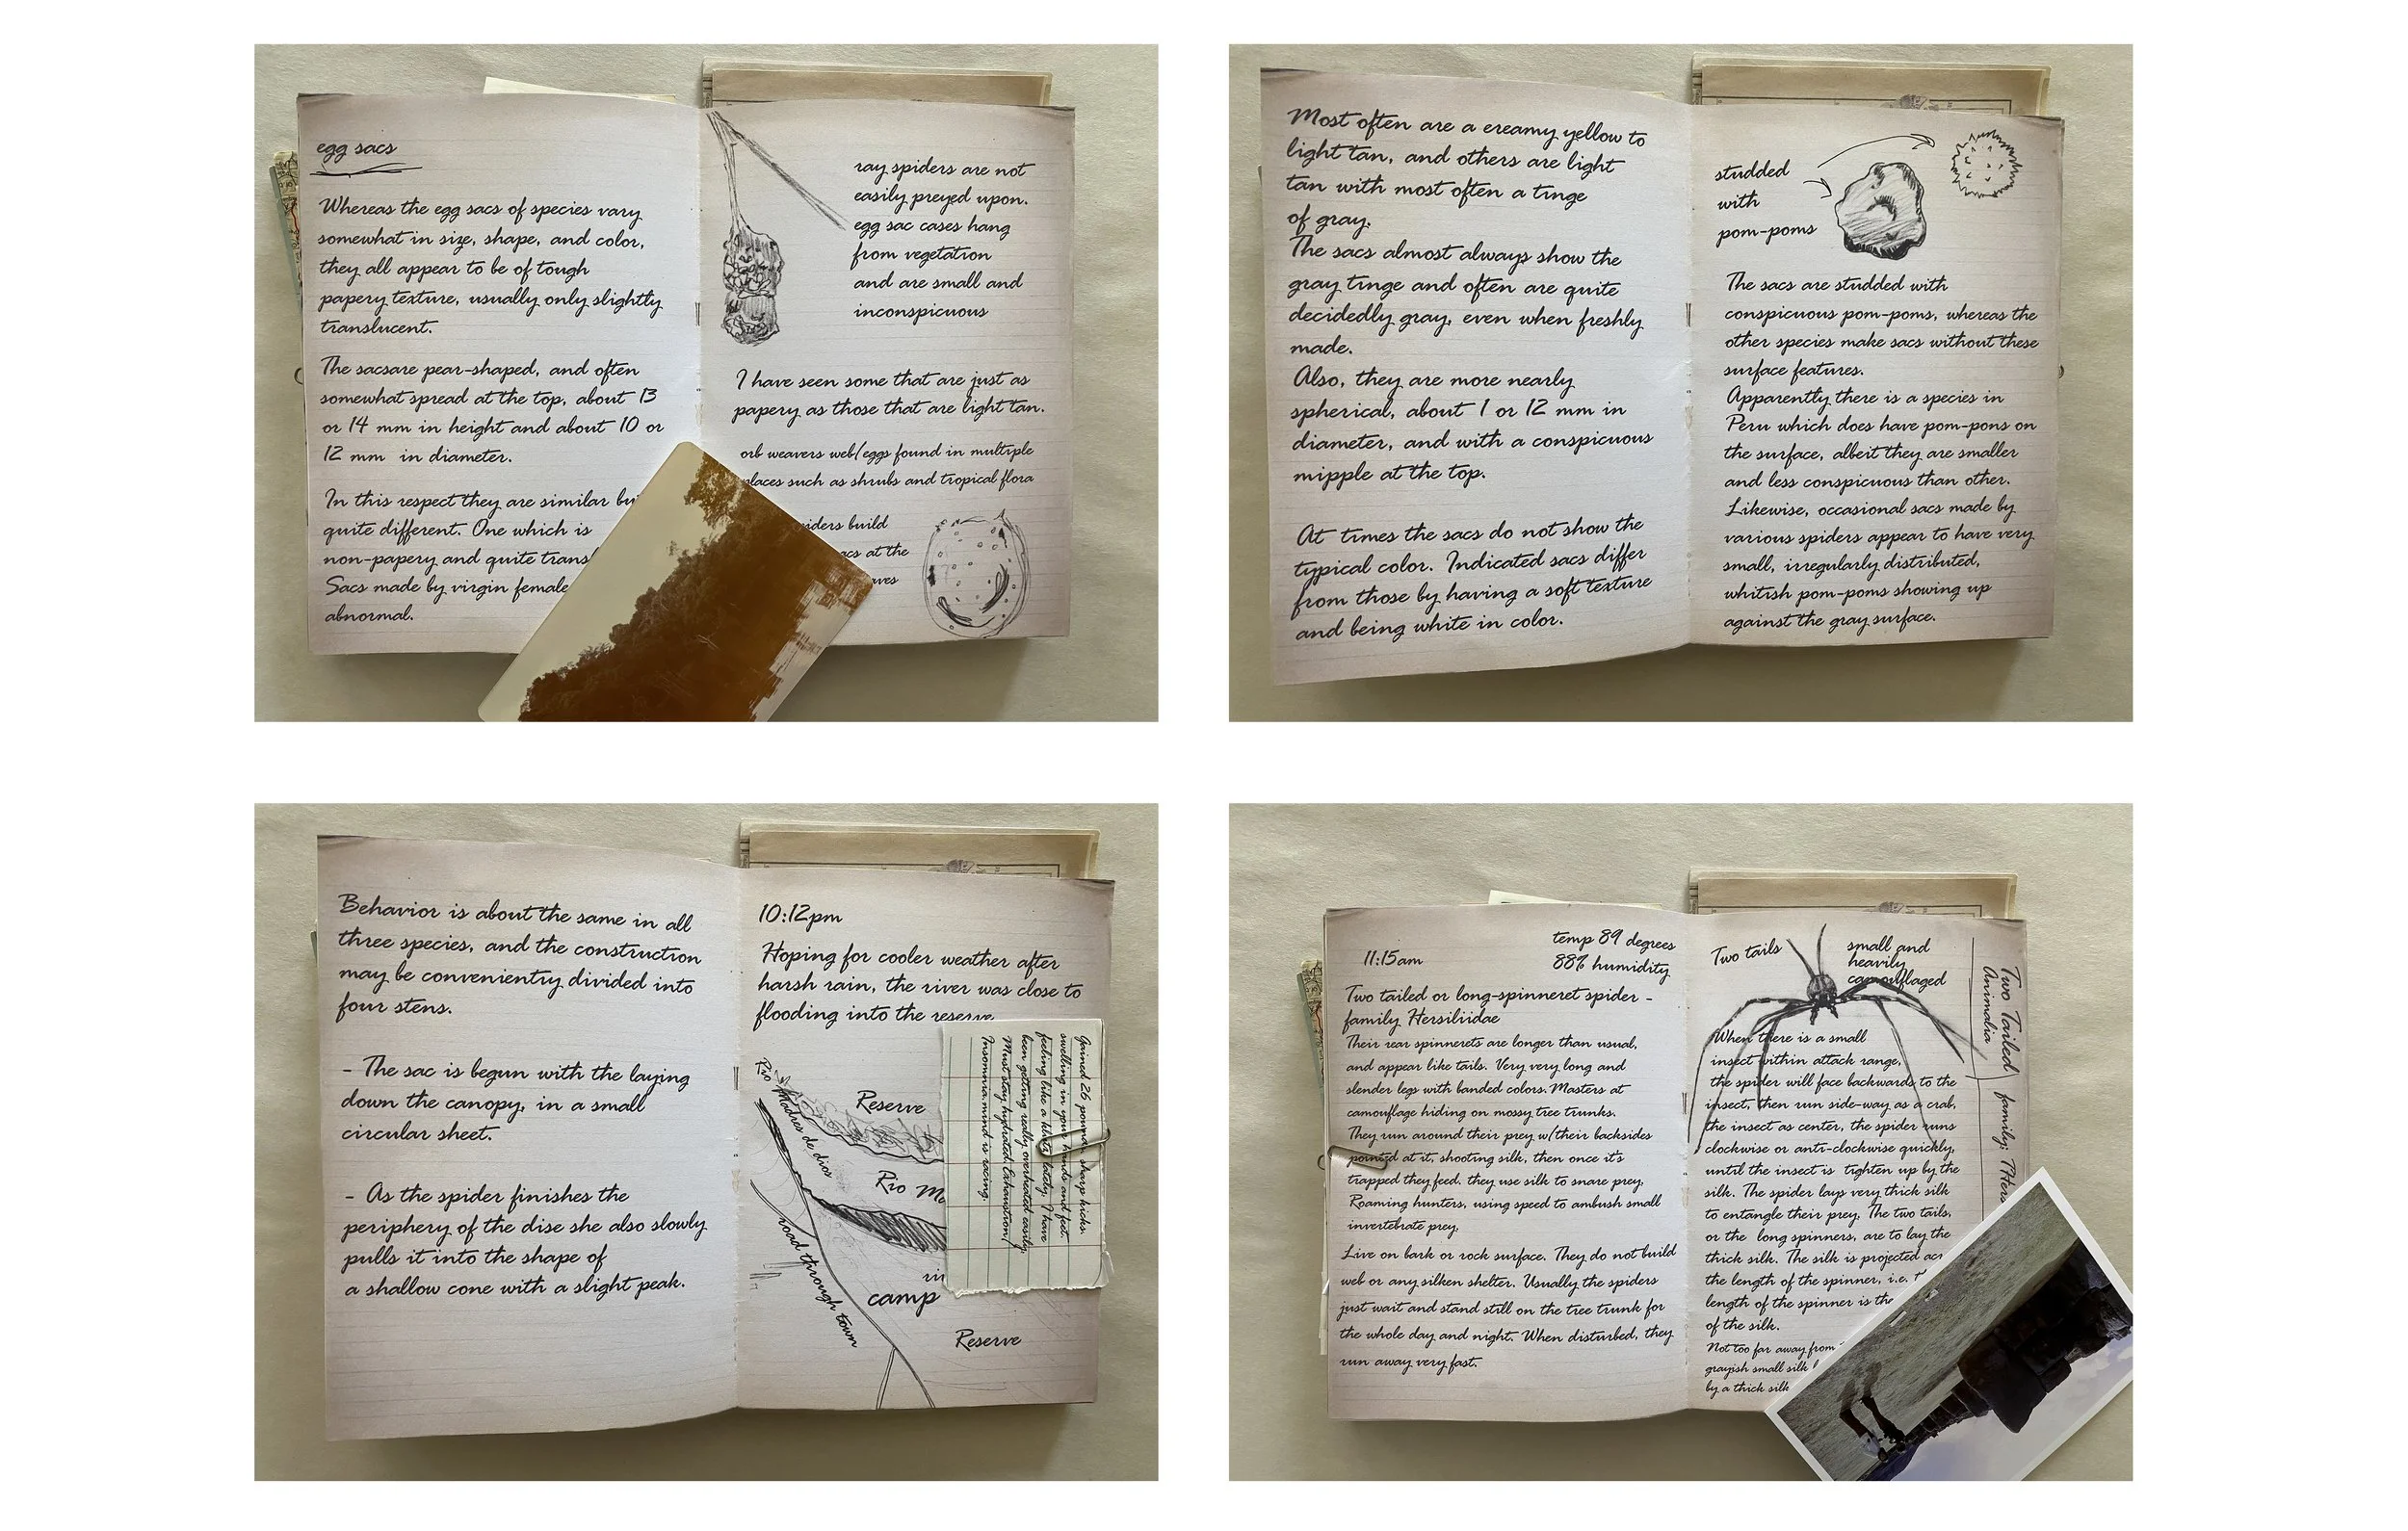 egg sacs
Whereas the egg sacs of species vary
somewhat in size, shape, and color,
they all appear to be of tough
papery texture, usually only slightly
translucent.
The sacsare pear-shaped, and often
somewhat spread at the top, about 13
or 14 mm in height and about 10 or
12 mm in diameter.
In this respect they are similar
quite different. One which is
non-papery and quite
Sacs made by virgin
abnormal.
ray spiders are not
easily preyed upon.
egg sac cases hang
from vegetation
and are small and
inconspicuous
I have seen some that are just as
papery as those that are light tan.
orb weavers web/eggs found in multiple
places such as shrubs and tropical flora
build
at the
Most often are a creamy yellow to
light tan, and others are light
tan with most often a tinge
of gray.
The sacs almost always show the
gray tinge and often are quite
decidedly gray, even when freshly
made.
Also, they are more nearly
spherical, about 1 or 12 mm in
diameter, and with a conspicuous
mipple at the top.
At times the sacs do not show the
typical color. Indicated sacs differ
from those by having a soft texture
and being white in color.
studded
with
pom-poms
The sacs are studded with
conspicuous pom-poms, whereas the
other species make sacs without these
surface features.
Apparently there is a species in
Peru which does have pom-pons on
the surface, albeit they are smaller
and less conspicuous than other.
Likewise, occasional sacs made by
various spiders appear to have very
small, irregularly distributed,
whitish pom-poms showing up
against the gray surface.
Behavior is about the same in all
three species, and the construction
may be convenientry divided into
four stens.
- The sac is begun with the laying
down the canopy, in a small
circular sheet.
- As the spider finishes the
periphery of the dise she also slowly
pulls it into the shape of
a shallow cone with a slight peak.
10:12pm
Hoping for cooler weather after
harsh rain, the river was close to
flooding into the reserve
Rio Madres de dios
Reserve
Rio
road through town
camp
Reserve
Gained 26 pounds sharp kicks.
swelling in your hands and feet.
feeling like a klutz lately. I have
been getting really overheated easily.
Must stay hydrated. Exhaustion/
Insomnia, mind is racing.
11:15am
temp 89 degrees
88% humidity
Two tailed or long-spinneret spider -
family Hersiliidae
Their rear spinnerets are longer than usual,
and appear like tails. Very very long and
slender legs with banded colors. Masters at
camouflage hiding on mossy tree trunks.
They run around their prey w/their backsides
pointed at it, shooting silk, then once it's
trapped they feed. they use silk to snare prey.
Roaming hunters, using speed to ambush small
invertebrate prey.
Live on bark or rock surface. They do not build
web or any silken shelter. Usually the spiders
just wait and stand still on the tree trunk for
the whole day and night. When disturbed, they
run away very fast.
Two tails
small and
heavily
camouflaged
When there is a small
insect within attack range,
the spider will face backwards to the
insect, then run side-way as a crab,
the insect as center, the spider runs
clockwise or anti-clockwise quickly,
until the insect is tighten up by the
silk. The spider lays very thick silk
to entangle their prey. The two tails,
or the long spinners, are to lay the
thick silk. The silk is projected
the length of the spinner, i.e.
length of the spinner is the
of the silk.
Not too far away from
grayish small silk
by a thick silk
Two Tailed family:
Animalia